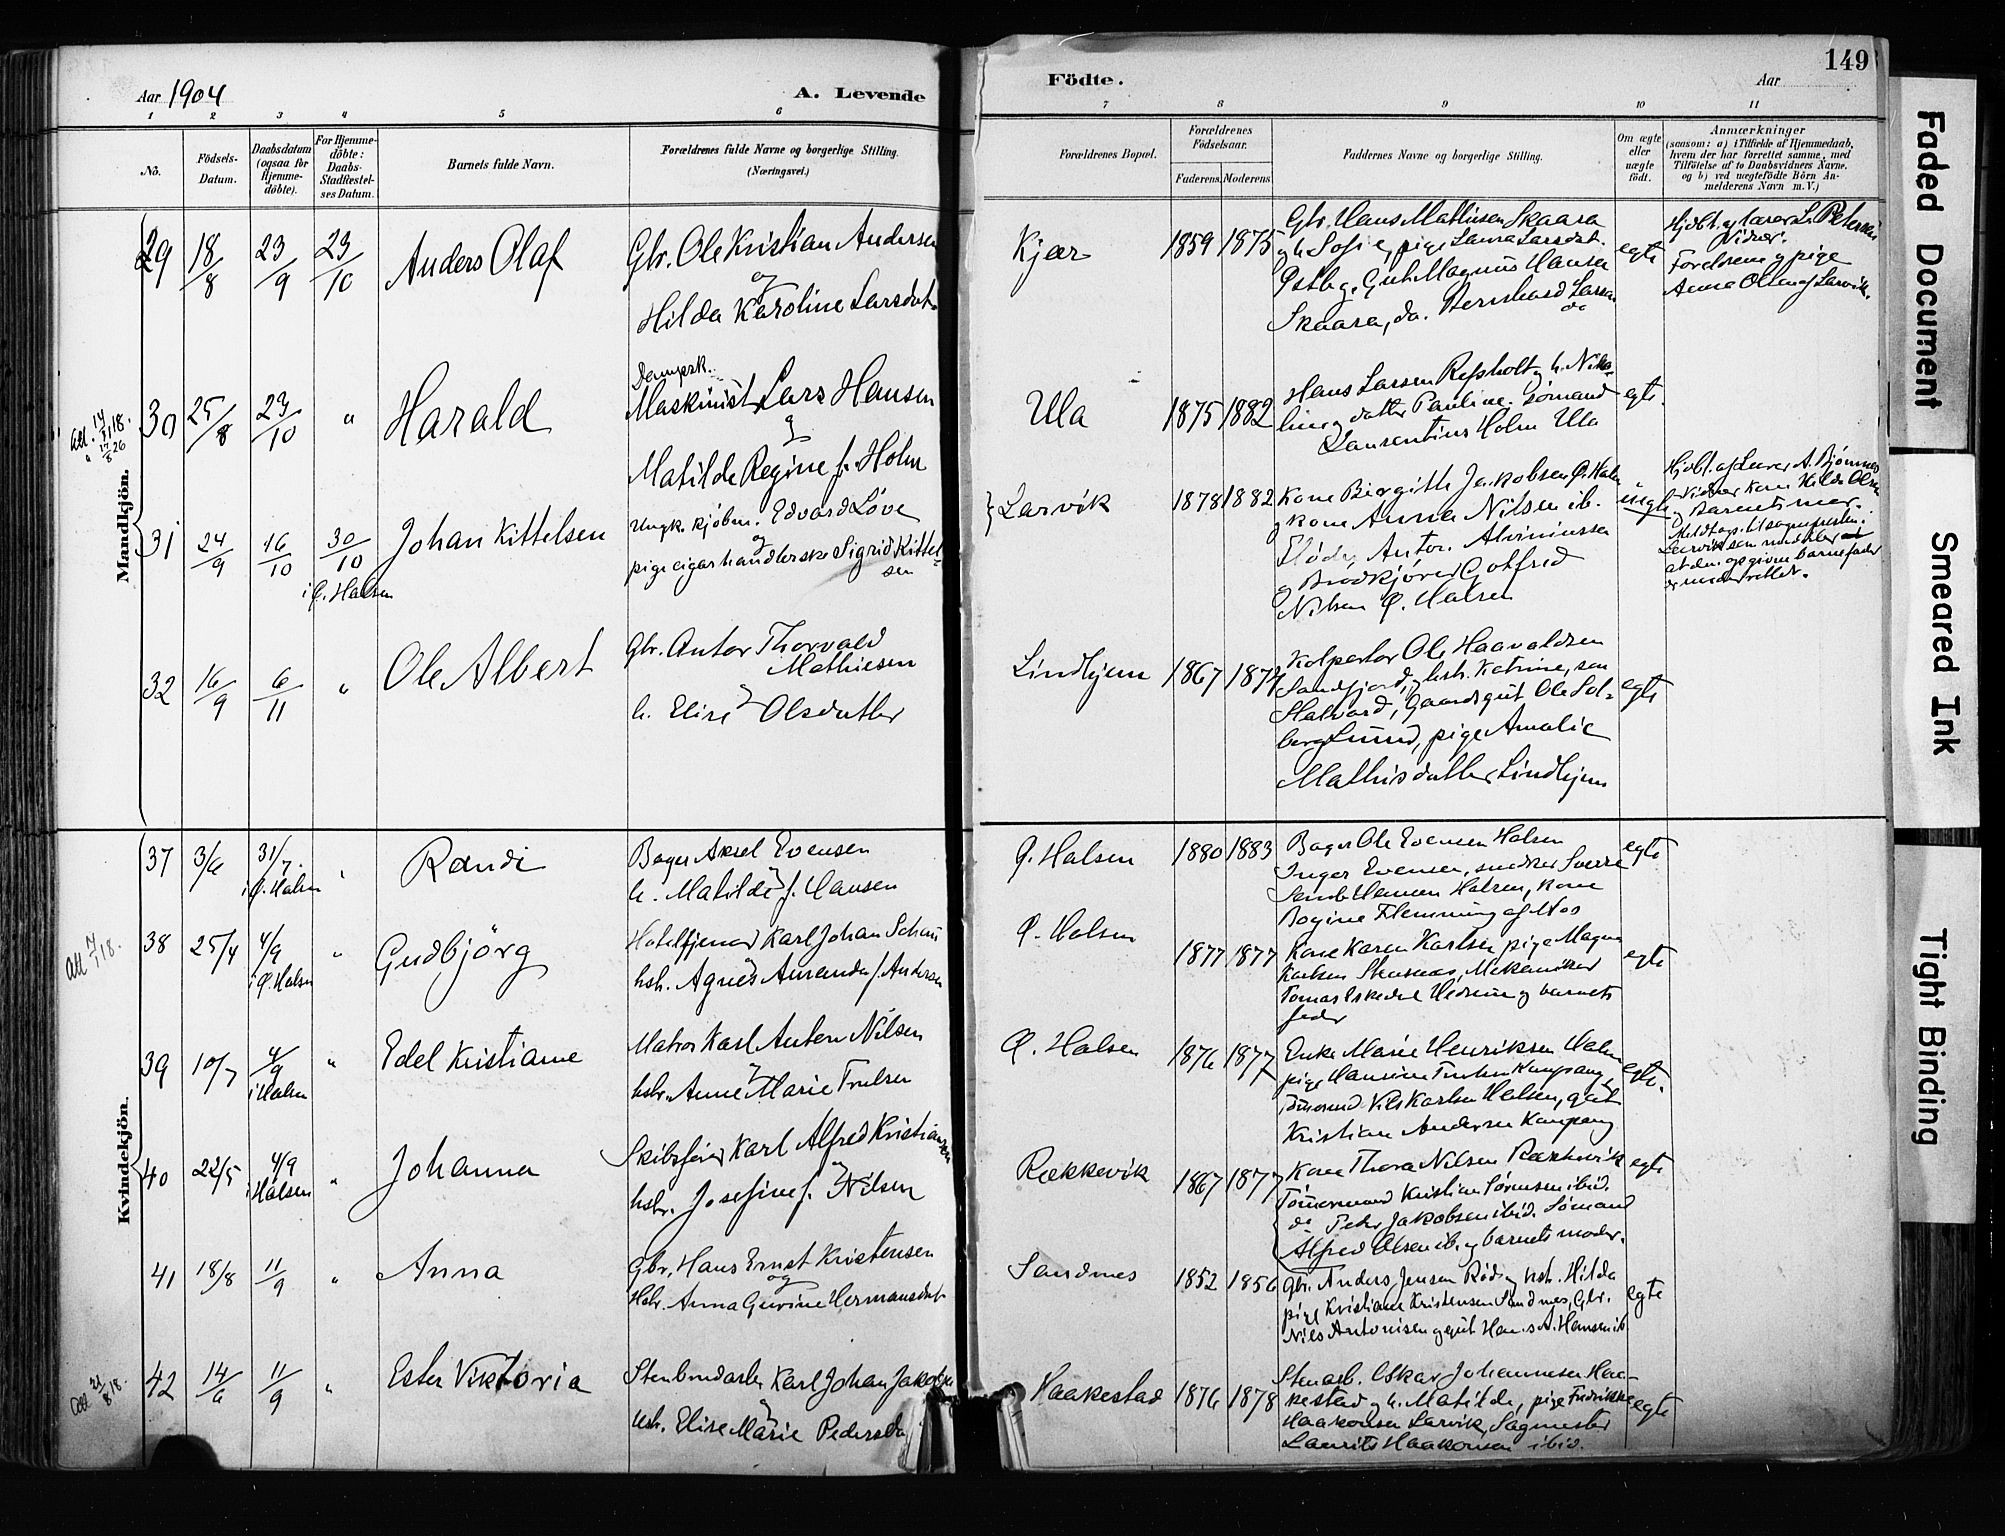 149
Aar 1904
A. Levende
Födte.
Aar
1 2 3 4 5 6 7 8 9 10 11
No.
Födsels-Datum.
Daabsdatum (ogsaa for Hjemme-döbte).
For Hjemme-döbte: Daabs-Stadfæstel-ses Datum.
Barnets fulde Navn.
Forældrenes fulde Navne og borgerlige Stilling. (Næringsvei.)
Forældrenes Bopæl.
Forældrenes Födselsaar.
Faderens. Moderens
Faddernes Navne og borgerlige Stilling.
Om ægte eller uægte födt.
Anmærkninger
(saasom: a) i Tilfælde af Hjemmedaab, hvem der har forrettet samme, med Tilföielse af to Daabsvidners Navne, og b) ved uægtefödte Börn An-melderens Navn m.V.)
Mandkjön.
29 18/8 23/9 23/10 Anders Olaf
Gbr. Ole Kristian Andersen
og
Hilda Karoline Larsdat.
Kjær 1859 1875
Gbr. Hans Mathisen Skaara
og h. Sofie, pige Laura Larsdat.
Gut Magnus Hansen
Skaara, do. Bernhard Larsen
do
egte
Foreldrene og pige
Anna Olsen af Larvik.
30 25/8 23/10 " Harald
Dampsk.
Maskinist Lars Hansen
og
Matilde Regine f. Holm
Ula 1875 1882
Hans Larsen Refsholt og h. Nika-
line og datter Pauline. Sömand
Laurentius Holm Ula
egte.
31 24/9 16/10 30/10 i Ö. Halsen
Johan Kittelsen
Ungk. kjöbm. Edvard Löve
og
pige cigarhandlerske Sigrid Kittel-
sen
Larvik 1878 1882
Kone Birgith Jakobsen Ö. Halsen
og kone Anna Nilsen ib.
Anton Alviniussen
og Brödkjörer Gotfred
Nilsen Ö. Halsen
uegte
Hjdbt. af Lærer A. Bjönnes
Vidner Kone Hilda Olsen
og Barnets mor.
Larvik som meddeler
at den opgivne barnefader
er underrettet.
32 16/9 6/11 " Ole Albert
Gbr. Anton Thorvald
Mathiesen
og
h. Elise Olsdatter
Lindhjem 1867 1877
Kolportör Ole Haavaldsen
Sandefjord, og hstr. Katrine, sön
Halvard, Gaardsgut Ole Sol-
berg Lund, pige Amalie
Mathisdatter Lindhjem
egte
Kvindekjön.
37 3/6 31/7. i Ö. Halsen " Randi
Bager Aksel Evensen
og
h. Matilde f. Hansen
Ö. Halsen 1880 1883
Bager Ole Evensen Halsen
Inger Evensen, snedker Sverre
Hansen Halsen, kone
Bogine Flemming af Mos
egte
38 25/4 4/9 i Ö. Halsen " Gudbjörg
Hoteltjener Karl Johan
og
hstr. Agnes Amanda f. Andersen
Ö. Halsen 1877 1877
Kone Karen Karlsen, pige Magna
Karlsen Stensnæs, Mekaniker
Tomas Eskedal Hedrum og barnets
fader
egte
39 10/7 4/9 i Halsen " Edel Kristiane
Matros Karl Anton Nilsen
og
hstr. Anne Marie Trulsen
Ö. Halsen 1876 1877
Enke Marie Henriksen Halsen
pige Hansine Trulsen Kaupang,
Tömmermd. Nils Karlsen Halsen, gut
Kristian Andersen Kaupang
egte.
40 22/5 4/9 i Halsen " Johanna
Skibsförer Karl Alfred Kristiansen
og
hstr. Josefine f. Nilsen
Rækkevik 1867 1877
Kone Thora Nilsen Rækkevik
Tömmermand Kristian Sörensen ibid.
do Peter Jakobsen ibid. Sömand
Alfred Olsen ib. og barnets moder.
egte
41 18/8 11/9 " Anna
Gbr. Hans Ernst Kristensen
og
Hstr. Anna Gurine Hermansdat.
Sandnes 1852 1856
Gbr. Anders Jensen Röd og hstr. Hilda
pige Kristiane Kristensen Sandnes, Gbr.
Nils Antonisen og gut Hans A. Hansen ib
egte
42 14/6 11/9 " Ester Viktoria
Stenbrudarb. Karl Johan Jakobsen
og
hstr. Elise Marie Pedersda
Haakestad 1876 1878
Stenarb. Oskar Johannesen Haa-
kestad og h. Matilde, pige Fredrikke
Haakonsen Larvik, Sagmester
Laurits Haakonsen ibid.
egte
Faded Document
Smeared Ink
Tight Binding